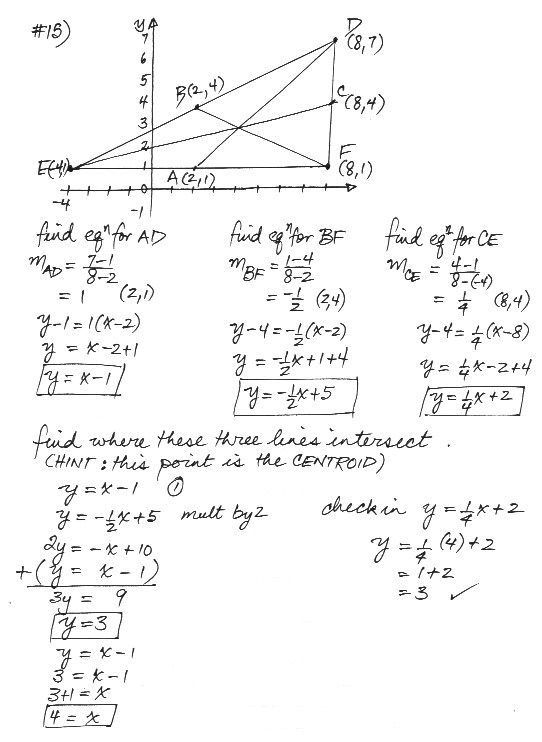 #15)
y
7
6
5
4
3
2
1
0
-1
-4
D
(8,7)
B(2,4)
C(8,4)
E(-4,1)
A(2,1)
F
(8,1)
find eqⁿ for AD
m_AD = 7-1/8-2
= 1 (2,1)
y-1 = 1(x-2)
y = x-2+1
y = x-1
find eqⁿ for BF
m_BF = 1-4/8-2
= -1/2 (2,4)
y-4 = -1/2(x-2)
y = -1/2x+1+4
y = -1/2x+5
find eqⁿ for CE
m_CE = 4-1/8-(-4)
= 1/4 (8,4)
y-4 = 1/4(x-8)
y = 1/4x-2+4
y = 1/4x+2
find where these three lines intersect.
(HINT: this point is the CENTROID)
y = x-1 ①
y = -1/2x+5 mult by 2
2y = -x+10
+(y = x-1)
3y = 9
y=3
y = x-1
3 = x-1
3+1 = x
4 = x
check in y = 1/4x+2
y = 1/4(4)+2
= 1+2
= 3 ✓